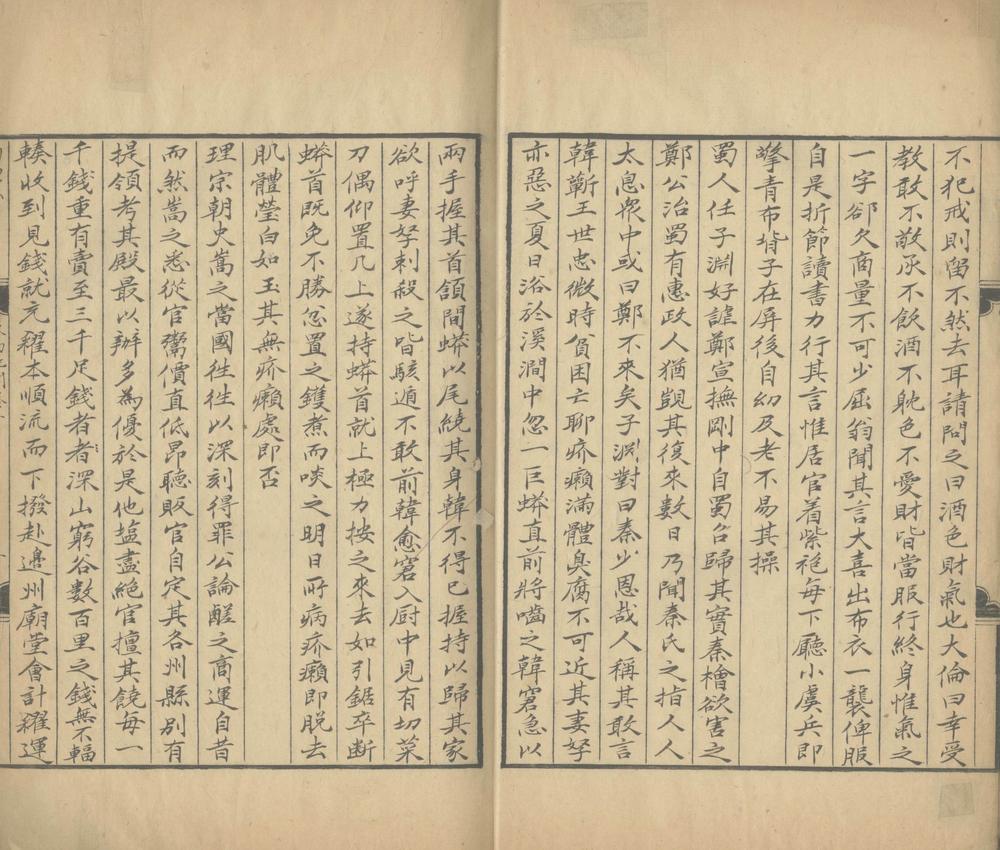 不犯戒則留不然去耳請問之曰酒色財氣也大倫曰幸受
教敢不敬承不飲酒不躭色不愛財皆當服行終身惟氣之
一字郤久商量不可少屈翁聞其言大喜出布衣一襲俾服
自是折節讀書力行其言惟居官着紫袍每下廳小虞兵即
擎青布背子在屏後自幼及老不易其操
蜀人任子淵好謔鄭宣撫剛中自蜀召歸其實秦檜欲害之
鄭公治蜀有惠政人猶覬其復來數日乃聞秦氏之指人人
太息衆中或曰鄭不來矣子淵對曰秦少恩哉人稱其敢言
韓蘄王世忠微時貧困亡聊疥癩滿體臭腐不可近其妻孥
亦惡之夏日浴於溪澗中忽一巨蟒直前將嚙之韓窘急以
兩手握其首頷間蟒以尾繞其身韓不得已握持以歸其家
欲呼妻孥刺殺之皆駭遁不敢前韓愈窘入厨中見有切菜
刀偶仰置几上遂持蟒首就上極力按之來去如引鋸卒断
蟒首既免不勝忿置之鑊煮而啖之明日所病疥癩即脫去
肌體瑩白如玉其無疥癩處即否
理宗朝史嵩之當國徃徃以深刻得罪公論醝之商運自昔
而然嵩之悉從官鬻價直低昂聴販官自定其各州縣別有
提領考其殿最以辦多為優於是他塩盡絶官擅其饒每一
千錢重有賣至三千足錢者者深山窮谷數百里之錢無不輻
輳收到見錢就充糴本順流而下撥赴邊州廟堂會計糴運